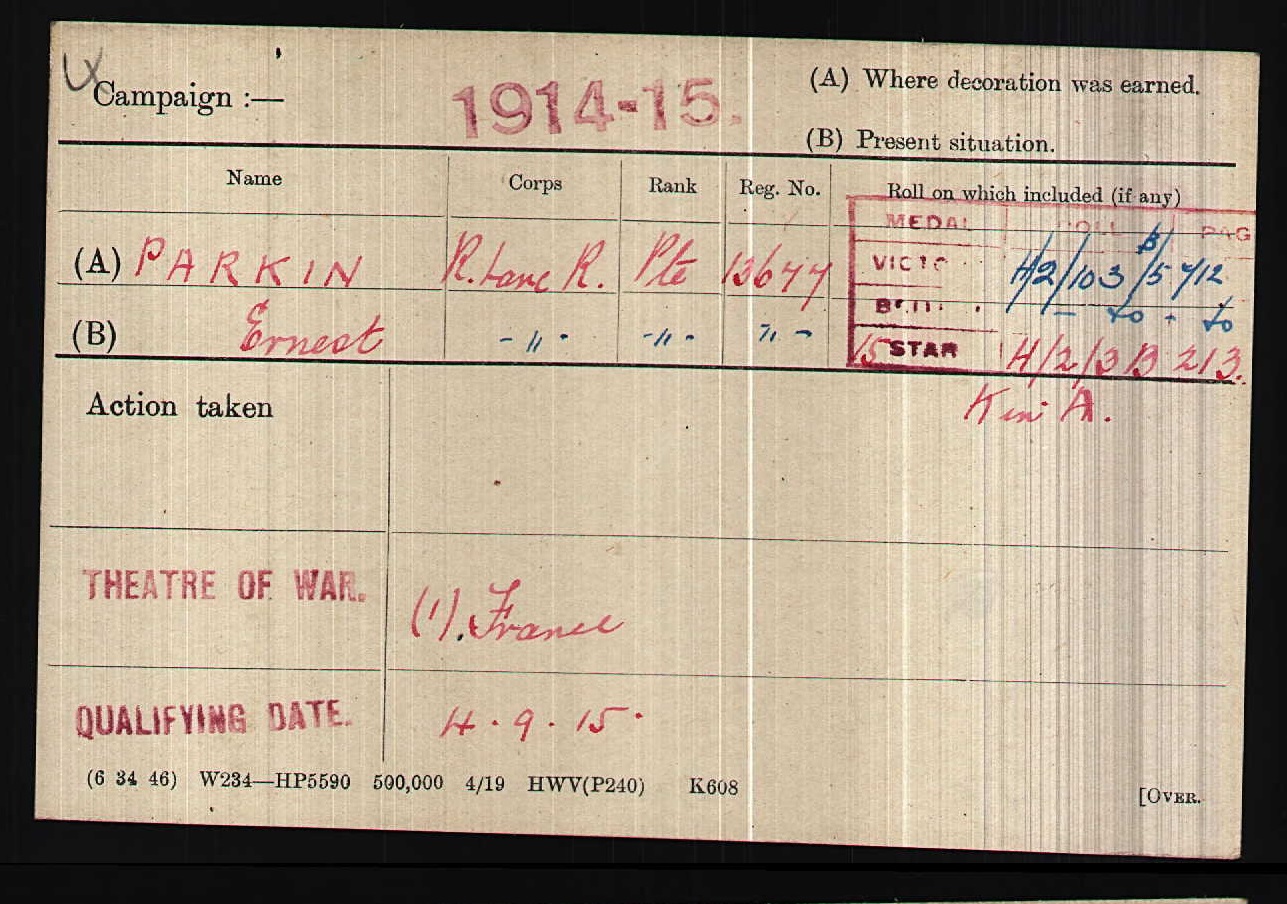 Campaign :—
1914-15.
(A) Where decoration was earned.
(B) Present situation.
Name Corps Rank Reg. No. Roll on which included (if any)
MEDAL ROLL PAG
(A) PARKIN R. Lanc R. Pte 13677 VICTO H/2/103 B/5 712
BRITI . - do - do
(B) Ernest -"- -"- "- 15 STAR H/2/3 B 213.
Action taken
K in A.
THEATRE OF WAR. (1). France
QUALIFYING DATE. 4.9.15.
(6 34 46) W234—HP5590 500,000 4/19 HWV(P240) K608
[OVER.